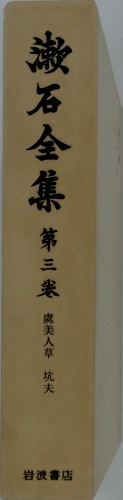 漱石全集
第三卷
虞美人草 坑夫
岩波書店